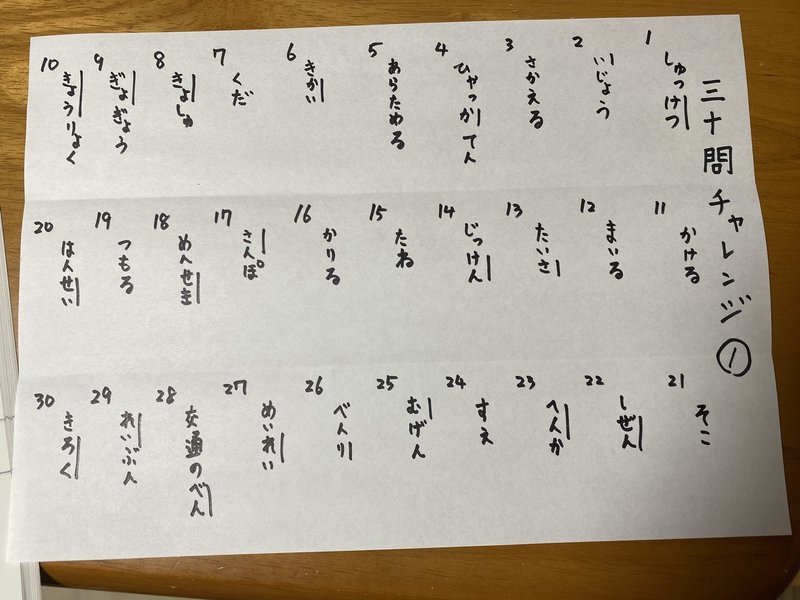 三十問チャレンジ①
1 しゅっけつ
2 いじょう
3 さかえる
4 ひゃっかてん
5 あらためる
6 きかい
7 くだ
8 きょしゅ
9 ぎょぎょう
10 きょうりょく
11 かける
12 まいる
13 たいさ
14 じっけん
15 たね
16 かりる
17 さんぽ
18 めんせき
19 つもる
20 はんせい
21 そこ
22 しぜん
23 へんか
24 すえ
25 むげん
26 べんり
27 めいれい
28 交通のべん
29 れいぶん
30 きろく